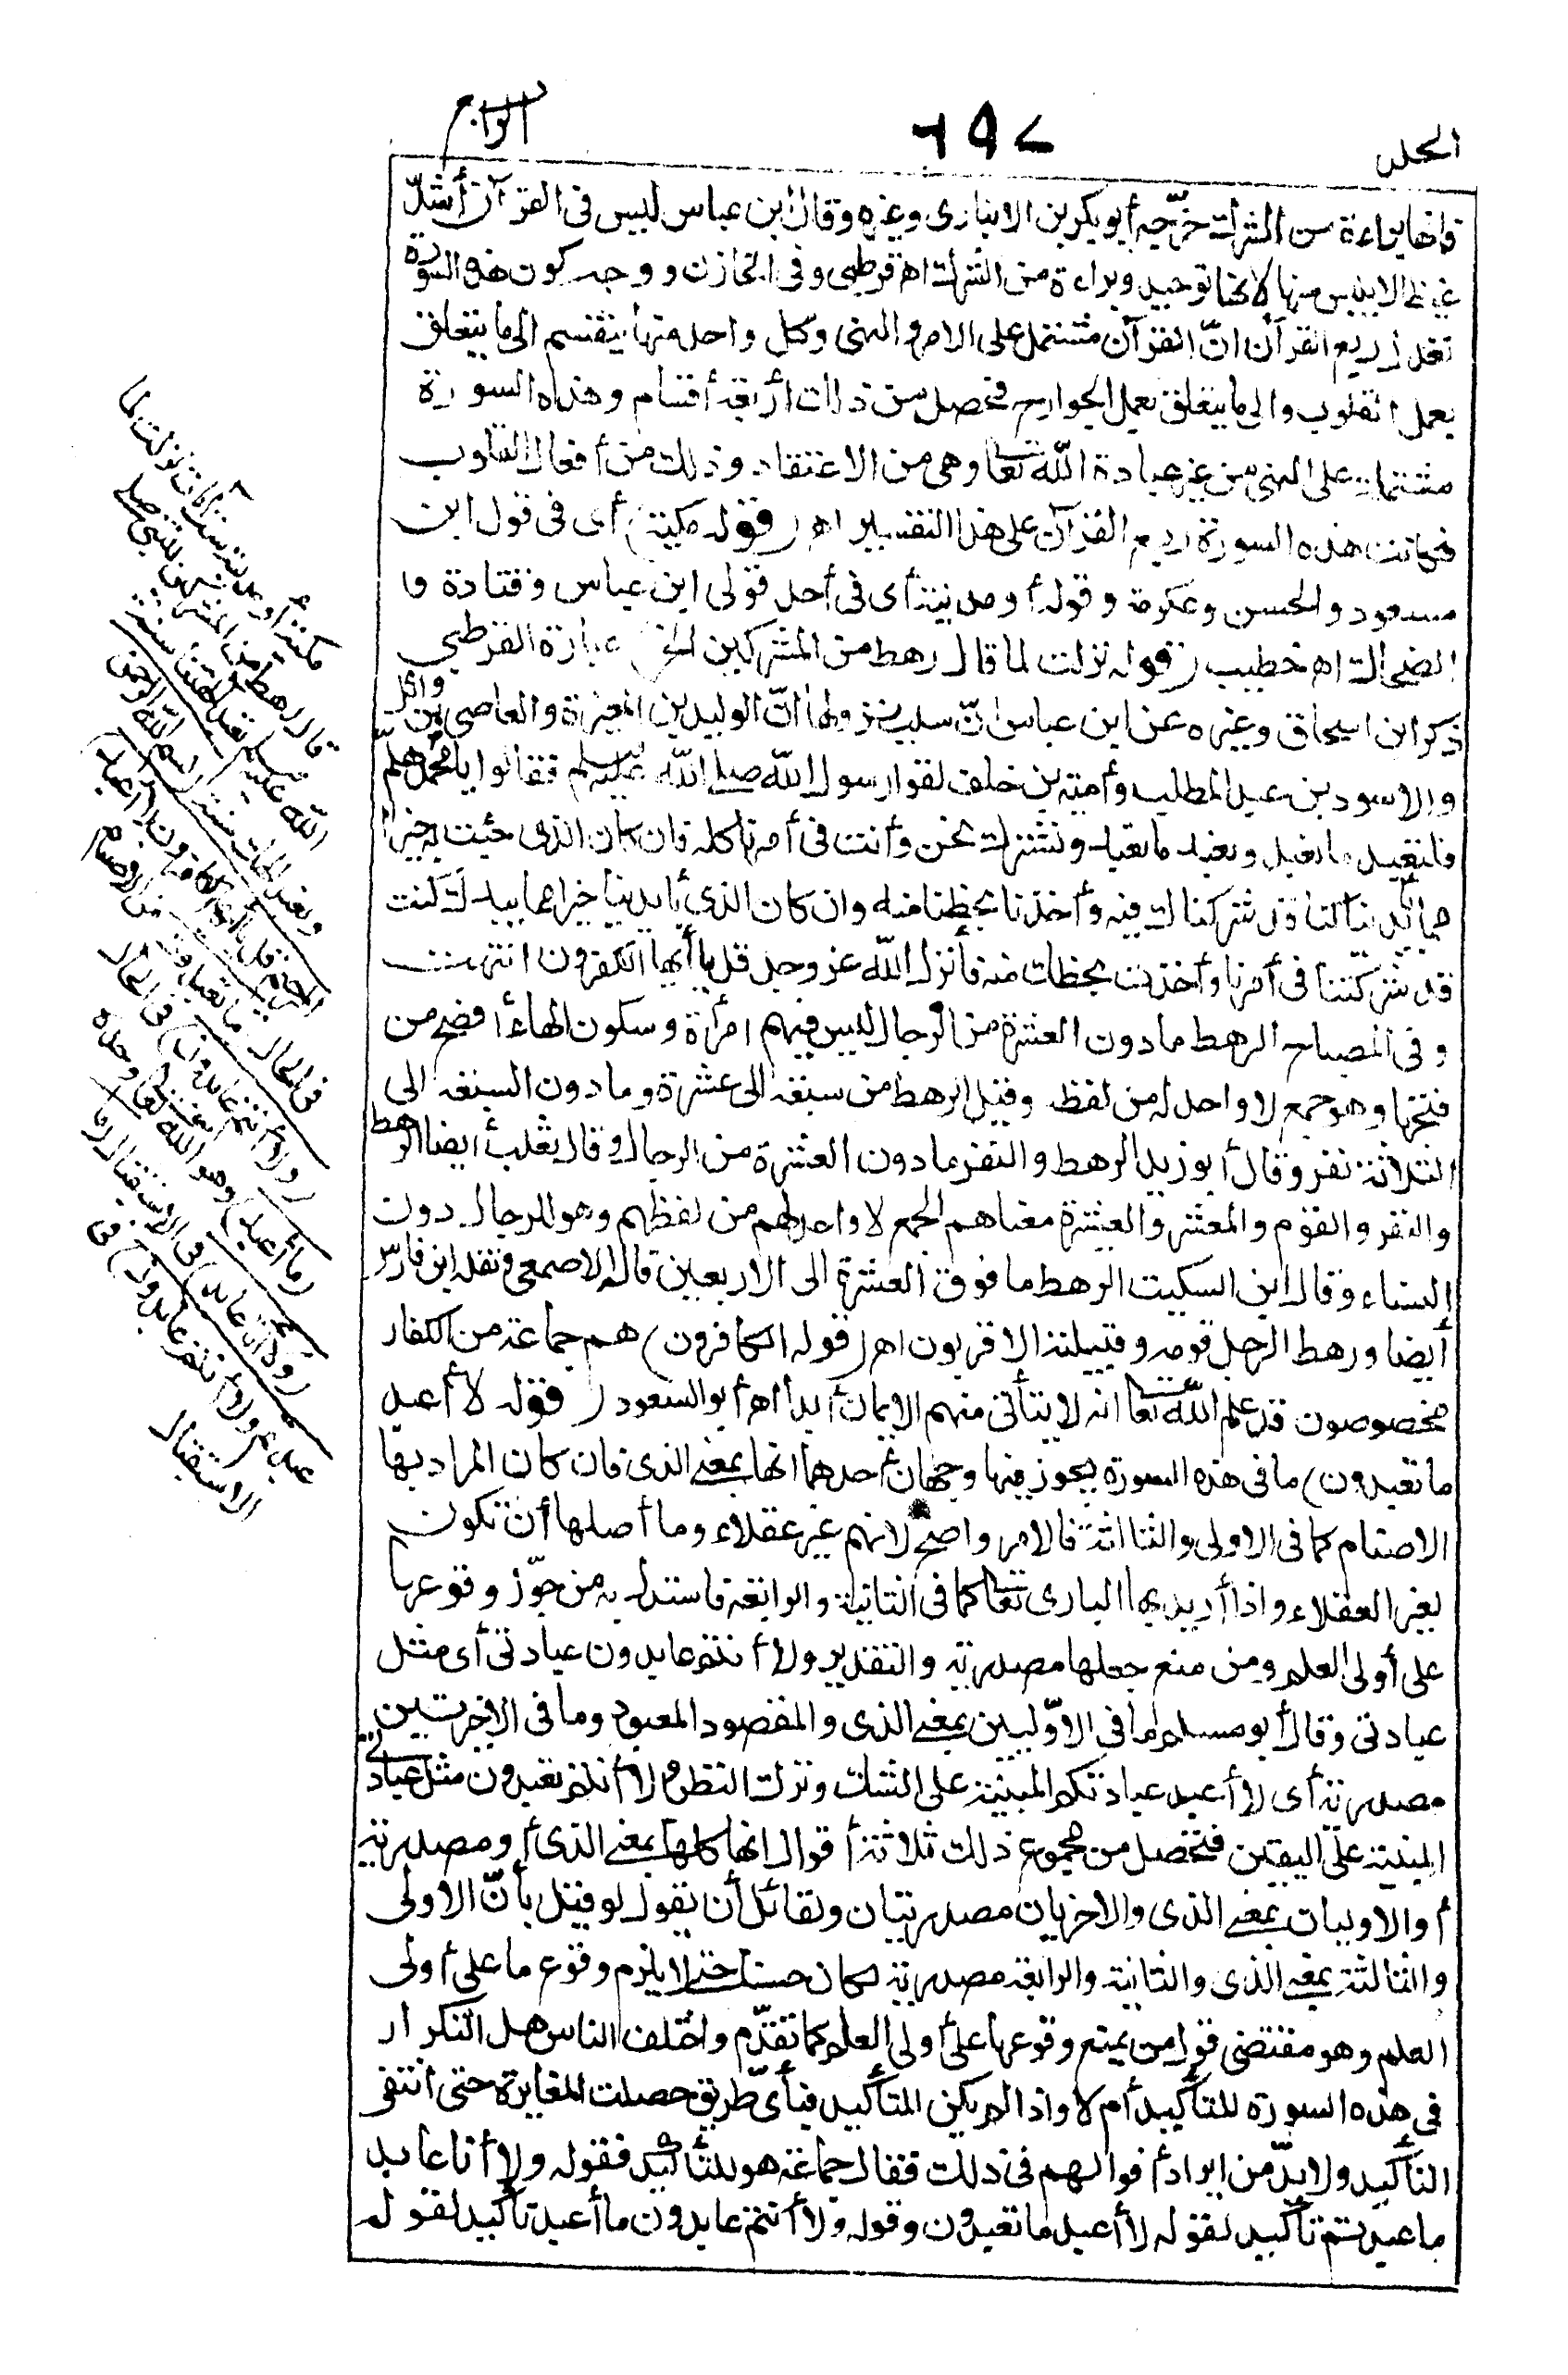 الجلد
٦٩٧
الرابع
فانها براءة من الشرك خرّجه أبو بكر بن الانبارى وغيره وقال ابن عباس ليس فى القرآن أشدّ
غيظا لابليس منها لانها توحيد وبراءة من الشرك اه قرطبى وفى الخازن ووجه كون هذه السورة
تعدل ربع القرآن انّ القرآن مشتمل على الامر والنهى وكل واحد منها ينقسم الى ما يتعلق
بعمل القلوب والى ما يتعلق بعمل الجوارح فحصل من ذلك أربعة أقسام وهذه السورة
مشتملة على النهى عن غير عبادة الله تعالى وهى من الاعتقاد وذلك من أفعال القلوب
فكانت هذه السورة ربع القرآن على هذا التقسيم اه (قوله مكية) أى فى قول ابن
مسعود والحسن وعكرمة وقوله أو مدنية أى فى أحد قولى ابن عباس وقتادة و
الضحاك اه خطيب (قوله نزلت لما قال رهط من المشركين الخ) عبارة القرطبى
ذكر ابن اسحاق وغيره عن ابن عباس انّ سبب نزولها انّ الوليد بن المغيرة والعاصى بن وائل
والاسود بن عبد المطلب وأمية بن خلف لقوا رسول الله صلى الله عليه وسلم فقالوا يا محمد هلم
فلنعبد ما تعبد وتعبد ما نعبد ونشترك نحن وأنت فى أمرنا كله فان كان الذى جئت به خيرا
مما بأيدينا كنا قد شركناك فيه وأخذنا بحظنا منه وان كان الذى بأيدينا خيرا مما بيدك كنت
قد شركتنا فى أمرنا وأخذت بحظك منه فأنزل الله عز وجل قل يا أيها الكفرون انتهت
وفى المصباح الرهط ما دون العشرة من الرجال ليس فيهم امرأة وسكون الهاء أفصح من
فتحها وهو جمع لا واحد له من لفظه وقيل الرهط من سبعة الى عشرة وما دون السبعة الى
الثلاثة نفر وقال أبو زيد الرهط والنفر ما دون العشرة من الرجال وقال ثعلب أيضا الرهط
والنفر والقوم والمعشر والعشرة معناهم الجمع لا واحد لهم من لفظهم وهو للرجال دون
النساء وقال ابن السكيت الرهط ما فوق العشرة الى الاربعين قاله الاصمعى ونقله ابن فارس
أيضا ورهط الرجل قومه وقبيلته الاقربون اه (قوله الكافرون) هم جماعة من الكفار
مخصوصون قد علم الله تعالى انه لا يتأتى منهم الايمان أبدا اه أبو السعود (قوله لا أعبد
ما تعبدون) ما فى هذه السورة يجوز فيها وجهان أحدهما انها بمعنى الذى فان كان المراد بها
الاصنام كما فى الاولى والثالثة فالامر واضح لانهم غير عقلاء وما أصلها أن تكون
لغير العقلاء واذا أريد بها البارى تعالى كما فى الثانية والرابعة فاستدل به من جوّز وقوعها
على أولى العلم ومن منع جعلها مصدرية والتقدير ولا أنتم عابدون عبادتى أى مثل
عبادتى وقال أبو مسلم ما فى الاوّليين بمعنى الذى والمقصود المعبود وما فى الاخرتين
مصدرية أى لا أعبد عبادتكم المبنية على الشك وترك النظر ولا أنتم تعبدون مثل عبادتى
المبنية على اليقين فتحصل من مجموع ذلك ثلاثة أقوال انها كلها بمعنى الذى أو مصدرية
أو الاوليان بمعنى الذى والاخريان مصدريتان ولقائل أن يقول لو قيل بأنّ الاولى
والثالثة بمعنى الذى والثانية والرابعة مصدرية لكان حسنا حتى لا يلزم وقوع ما على أولى
العلم وهو مقتضى قول من يمنع وقوعها على أولى العلم كما تقدّم واختلف الناس هل التكرار
فى هذه السورة للتأكيد أم لا واذا لم يكن للتأكيد فبأىّ طريق حصلت المغايرة حتى انتفى
التأكيد ولا بدّ من ايراد أقوالهم فى ذلك فقال جماعة هو للتأكيد فقوله ولا أنا عابد
ما عبدتم تأكيد لقوله لا أعبد ما تعبدون وقوله ولا أنتم عابدون ما أعبد تأكيد لقوله
مكية أو مدنية ست آيات نزلت لما
قال رهط من المشركين للنبى صلى
الله عليه وسلم تعبد آلهتنا سنة
ونعبد الهك سنة (بسم الله الرحمن
الرحيم قل يا أيها الكافرون لا أعبد)
فى الحال (ما تعبدون) من الاصنام
(ولا أنتم عابدون) فى الحال
(ما أعبد) وهو الله تعالى وحده
(ولا أنا عابد) فى الاستقبال (ما
عبدتم ولا أنتم عابدون) فى
الاستقبال